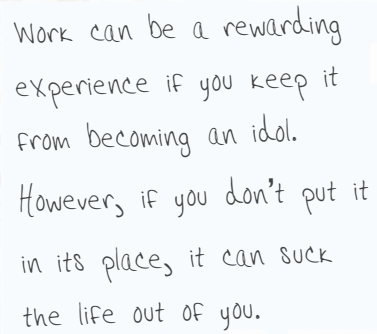 Work can be a rewarding
experience if you keep it
from becoming an idol.
However, if you don't put it
in its place, it can suck
the life out of you.